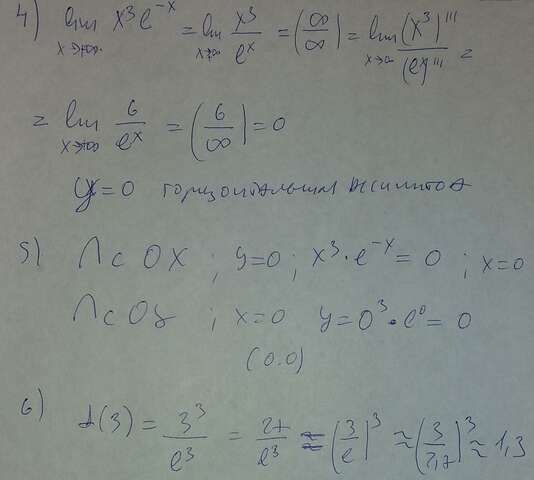 4) lim x→+∞ x³e⁻ˣ = lim x→∞ x³/eˣ = (∞/∞) = lim x→∞ (x³)'''/(eˣ)''' =
= lim x→+∞ 6/eˣ = (6/∞) = 0
y=0 горизонтальная асимптота
5) ∩ с OX ; y=0 ; x³·e⁻ˣ = 0 ; x=0
∩ с Oy ; x=0 y=0³·e⁰=0
(0.0)
6) f(3) = 3³/e³ = 27/e³ ≈ (3/e)³ ≈ (3/2,7)³ ≈ 1,3